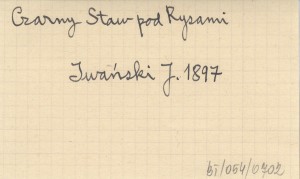 Czarny Staw pod Rysami
Iwański J. 1897
bi/054/0702